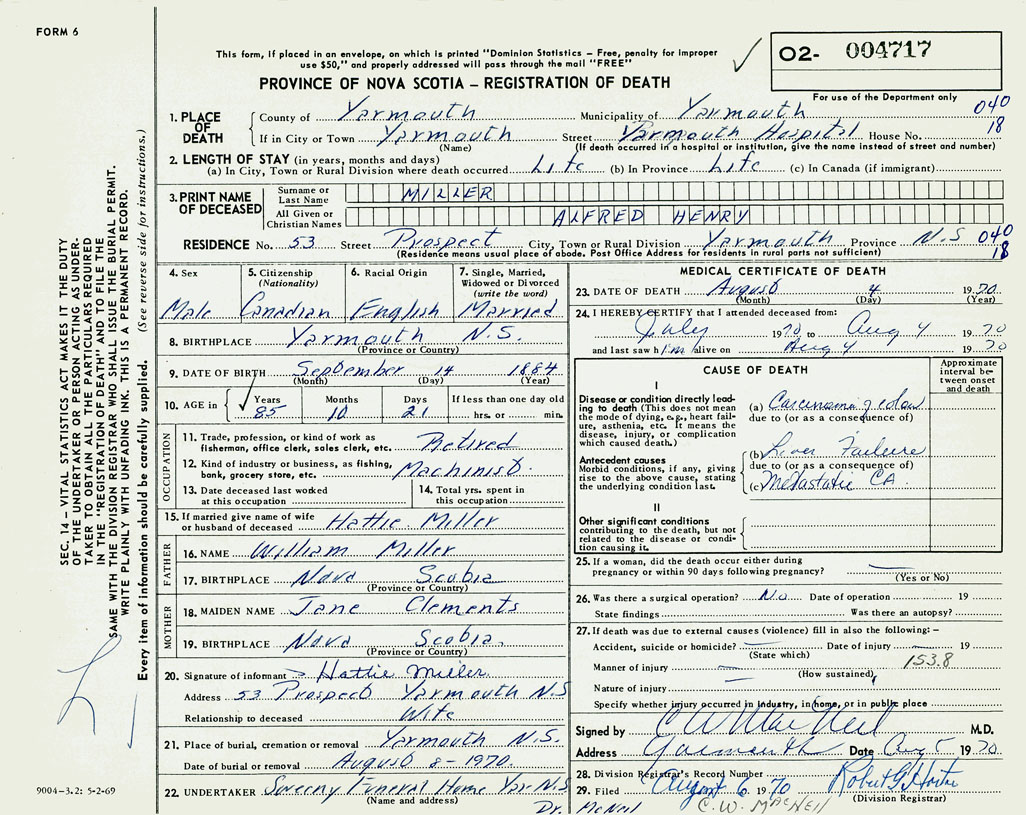 FORM 6
This form, if placed in an envelope, on which is printed "Dominion Statistics – Free, penalty for improper
use $50," and properly addressed will pass through the mail "FREE"
PROVINCE OF NOVA SCOTIA – REGISTRATION OF DEATH
02- 004717
For use of the Department only
040
18
1. PLACE OF DEATH
County of Yarmouth Municipality of Yarmouth
If in City or Town Yarmouth Street Yarmouth Hospital House No.
(Name) (If death occurred in a hospital or institution, give the name instead of street and number)
2. LENGTH OF STAY (in years, months and days)
(a) In City, Town or Rural Division where death occurred Life (b) In Province Life (c) In Canada (if immigrant)
3. PRINT NAME OF DECEASED
Surname or Last Name MILLER
All Given or Christian Names ALFRED HENRY
RESIDENCE No. 53 Street Prospect City, Town or Rural Division Yarmouth Province N.S 040
(Residence means usual place of abode. Post Office Address for residents in rural parts not sufficient) 18
4. Sex
Male
5. Citizenship (Nationality)
Canadian
6. Racial Origin
English
7. Single, Married, Widowed or Divorced (write the word)
Married
8. BIRTHPLACE Yarmouth N.S.
(Province or Country)
9. DATE OF BIRTH September 14 1884
(Month) (Day) (Year)
10. AGE in Years Months Days If less than one day old
85 10 21 hrs. or min.
OCCUPATION
11. Trade, profession, or kind of work as
fisherman, office clerk, sales clerk, etc. Retired
12. Kind of industry or business, as fishing,
bank, grocery store, etc. Machinist
13. Date deceased last worked
at this occupation
14. Total yrs. spent in
this occupation
15. If married give name of wife
or husband of deceased Hattie Miller
FATHER
16. NAME William Miller
17. BIRTHPLACE Nova Scotia
(Province or Country)
MOTHER
18. MAIDEN NAME Jane Clements
19. BIRTHPLACE Nova Scotia
(Province or Country)
20. Signature of informant Hattie Miller
Address 53 Prospect Yarmouth N.S
Relationship to deceased Wife
21. Place of burial, cremation or removal Yarmouth N.S.
Date of burial or removal August 8-1970
22. UNDERTAKER Sweeny Funeral Home Yar. N.S
(Name and address)
MEDICAL CERTIFICATE OF DEATH
23. DATE OF DEATH August 4 1970
(Month) (Day) (Year)
24. I HEREBY CERTIFY that I attended deceased from:
July 1970 to Aug 4 1970
and last saw him alive on Aug 4 1970
CAUSE OF DEATH
Approximate interval between onset and death
I
Disease or condition directly lead-
ing to death (This does not mean
the mode of dying, e.g., heart fail-
ure, asthenia, etc. It means the
disease, injury, or complication
which caused death.)
(a) Carcinoma of colon
due to (or as a consequence of)
Antecedent causes
Morbid conditions, if any, giving
rise to the above cause, stating
the underlying condition last.
(b) Liver Failure
due to (or as a consequence of)
(c) Metastatic CA.
II
Other significant conditions
contributing to the death, but not
related to the disease or condi-
tion causing it.
25. If a woman, did the death occur either during
pregnancy or within 90 days following pregnancy?
(Yes or No)
26. Was there a surgical operation? No. Date of operation 19
State findings Was there an autopsy?
27. If death was due to external causes (violence) fill in also the following: –
Accident, suicide or homicide? Date of injury 19
(State which) 153.8
Manner of injury
(How sustained)
Nature of injury
Specify whether injury occurred in industry, in home, or in public place
Signed by C W MacNeil M.D.
Address Yarmouth Date Aug 5 1970
28. Division Registrar's Record Number
29. Filed August 6 1970
(Division Registrar)
Dr. McNeil C.W. MACNEIL
SEC. 14 – VITAL STATISTICS ACT MAKES IT THE DUTY
OF THE UNDERTAKER OR PERSON ACTING AS UNDER-
TAKER TO OBTAIN ALL THE PARTICULARS REQUIRED
IN THE "REGISTRATION OF DEATH" AND TO FILE THE
SAME WITH THE DIVISION REGISTRAR WHO SHALL ISSUE THE BURIAL PERMIT.
WRITE PLAINLY WITH UNFADING INK. THIS IS A PERMANENT RECORD.
Every item of information should be carefully supplied. (See reverse side for instructions.)
9004-3.2: 5-2-69